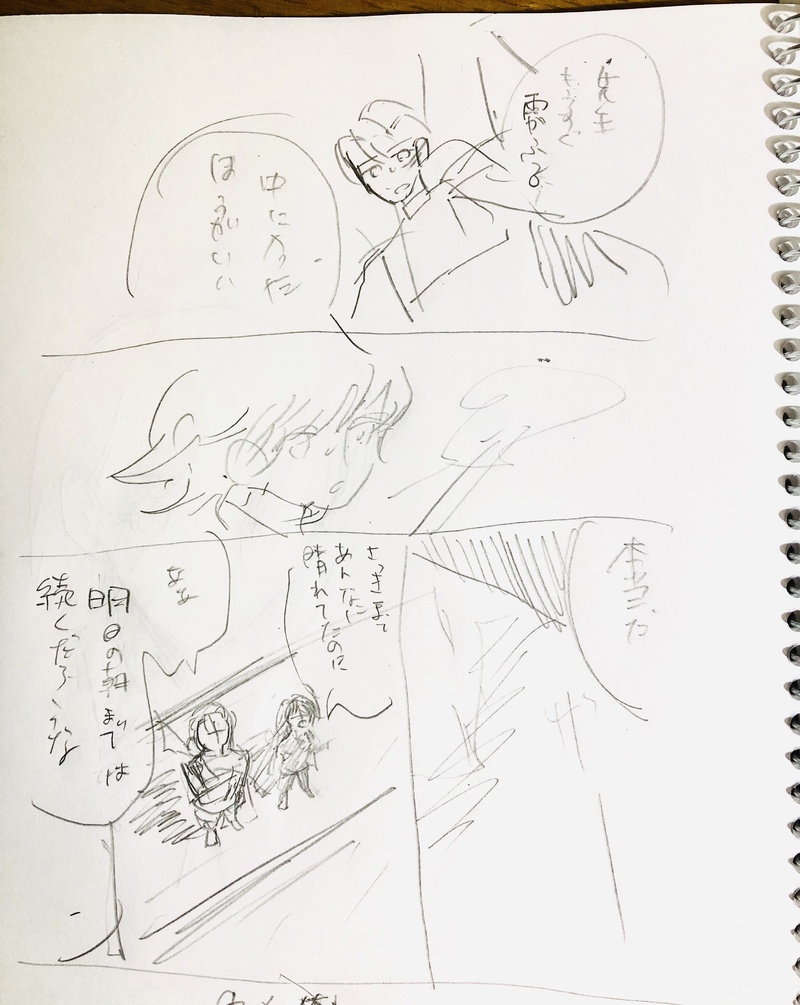 先生
もうすぐ
雪がふる
中に入った
ほうがいい
本当だ
さっきまで
あんなに
晴れてたのに
ああ
明日の朝までは
続くだろうな